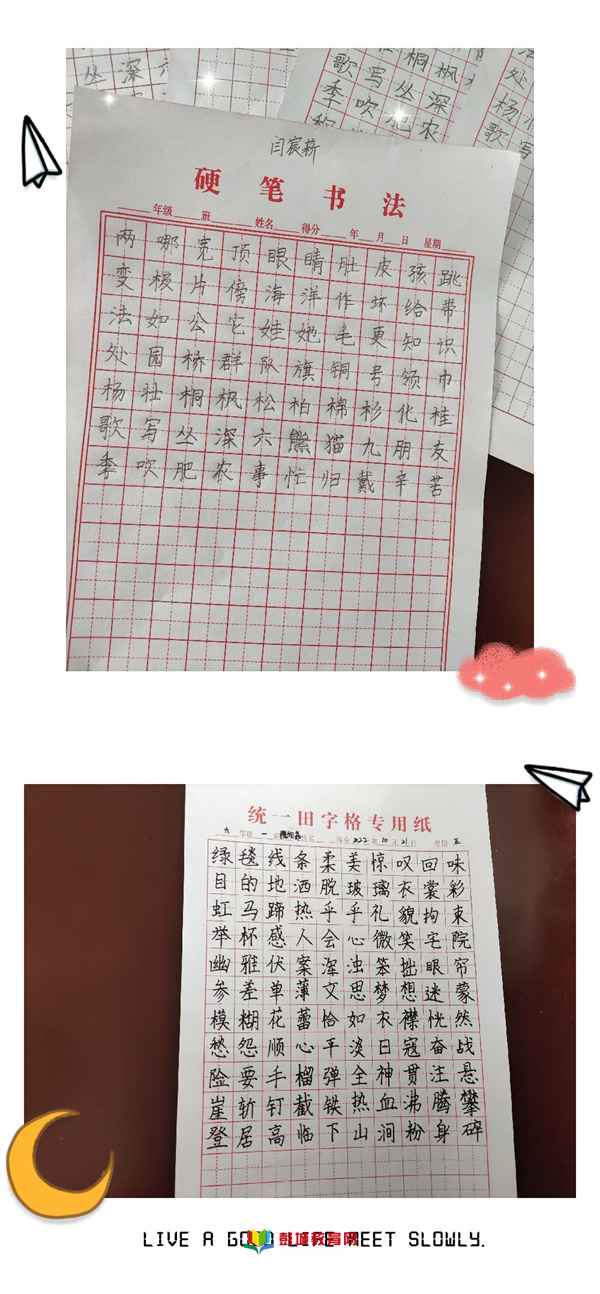 闫宸菥
硬笔书法
年级 班 姓名 得分 年 月 日 星期
两哪宽顶眼睛肚皮孩跳
变极片傍海洋作坏给带
法如公它娃她毛更知识
处园桥群队旗铜号领巾
杨壮桐枫松柏棉杉化桂
歌写丛深六熊猫九朋友
季吹肥农事忙归戴辛苦
统一田字格专用纸
六 年级 一 班 姓名 得分 2022 年 10 月 21 日 星期 五
绿毯线条柔美惊叹回味
目的地洒脱玻璃衣裳彩
虹马蹄热乎乎礼貌拘束
举杯感人会心微笑宅院
幽雅伏案浑浊笨拙眼帘
参差单薄文思梦想迷蒙
模糊花蕾恰如衣襟恍然
愁怨顺心平淡日寇奋战
险要手榴弹全神贯注悬
崖斩钉截铁热血沸腾攀
登居高临下山涧粉身碎
LIVE A GOOD LIFE MEET SLOWLY.
彭城教育网